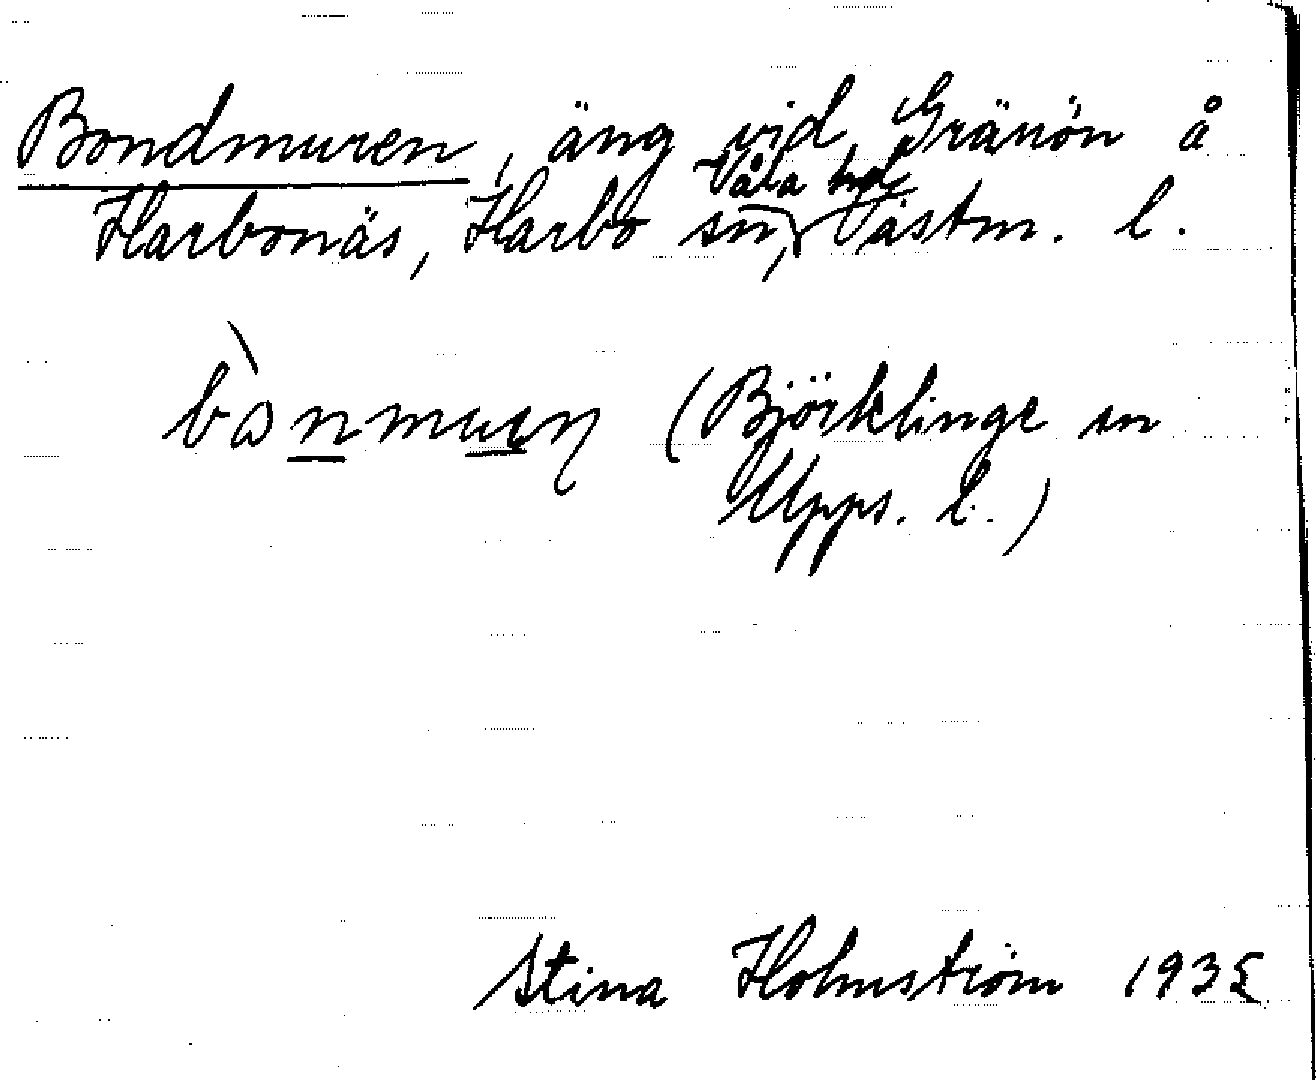 Bondmuren, äng vid Gränön å
Våla hd
Harbonäs, Harbo sn, Västm. l.
bònmuṇ (Björklinge sn
Upps. l.)
Stina Holmström 1935